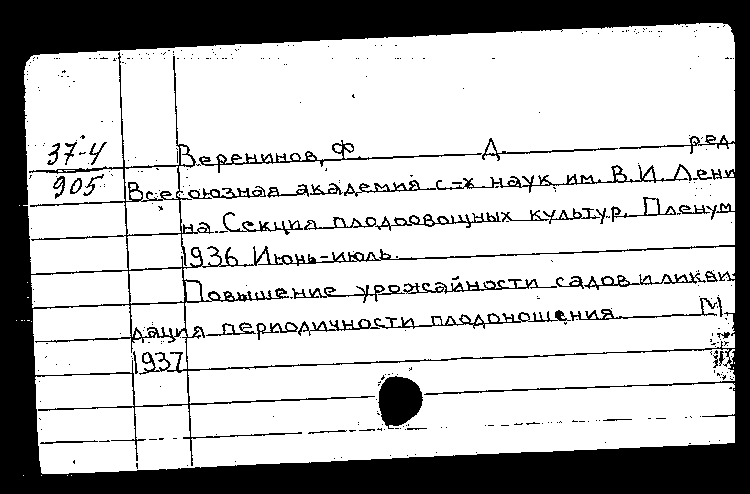 37-4
905
Веренинов, Ф. Д. ред.
Всесоюзная академия с-х наук им. В. И. Лени
на Секция плодоовощных культур. Пленум
1936 Июнь-июль.
Повышение урожайности садов и ликви-
дация периодичности плодоношения. М.
1937